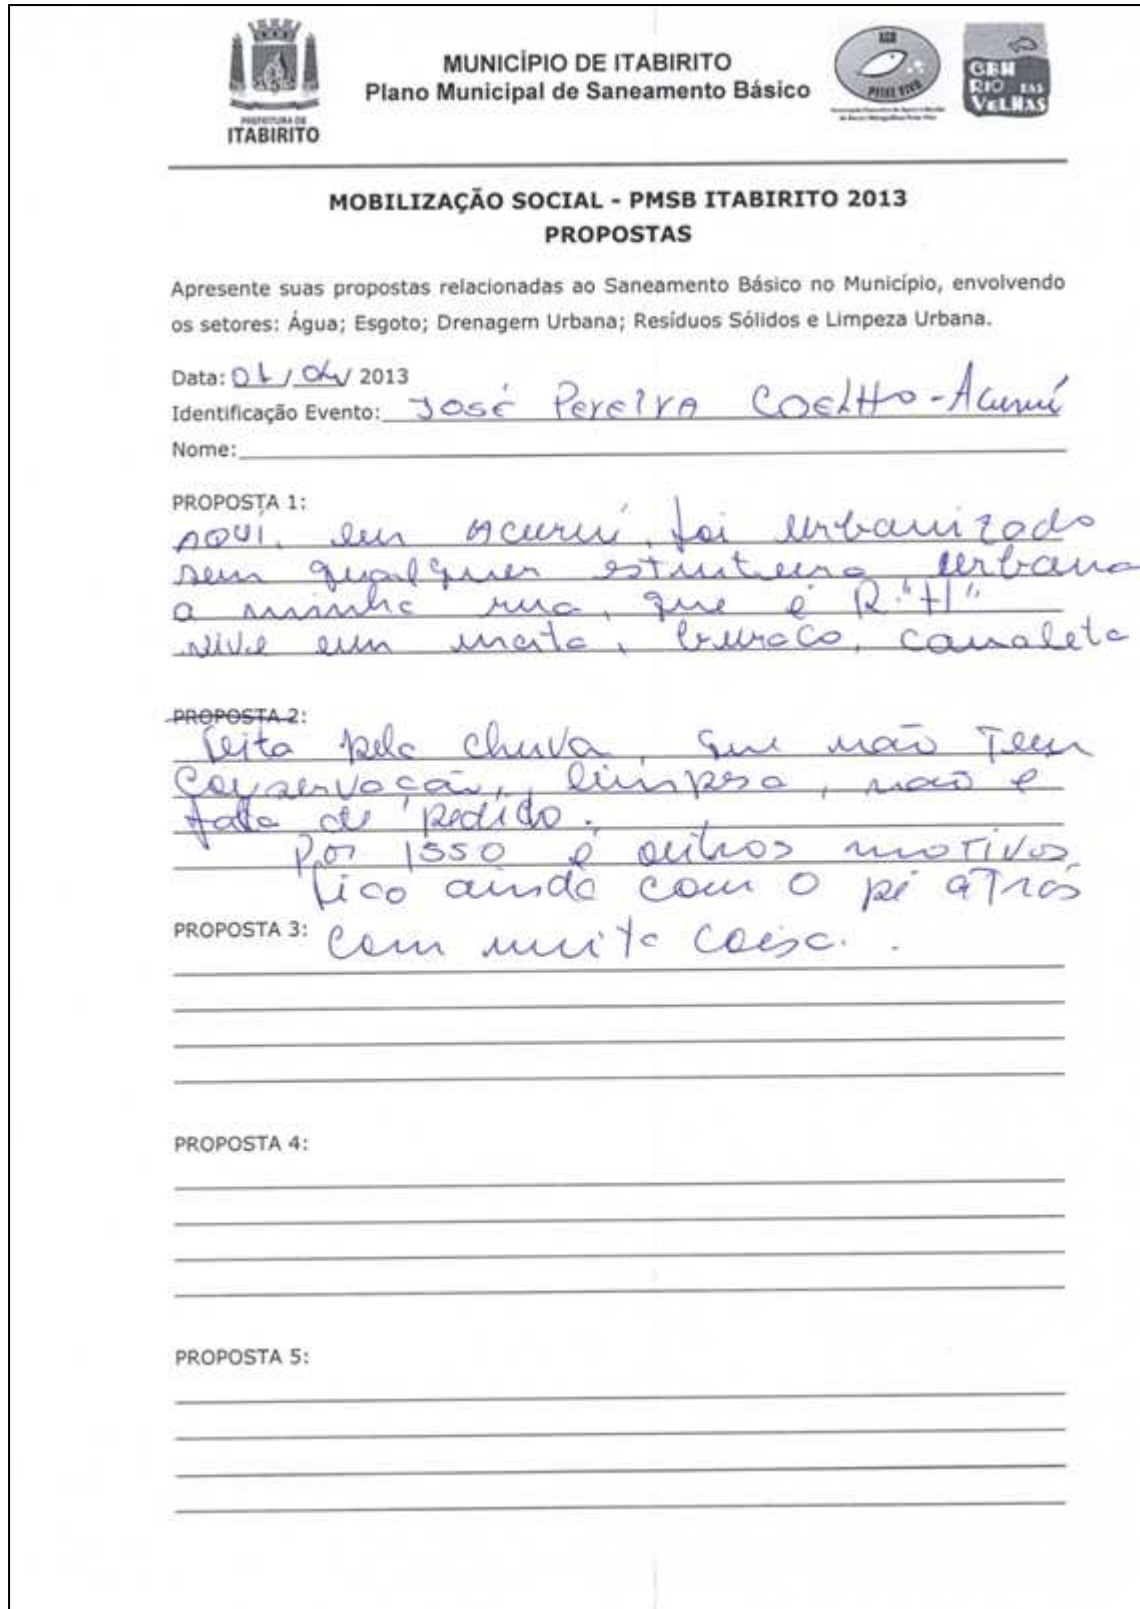 PREFEITURA DE
ITABIRITO
MUNICÍPIO DE ITABIRITO
Plano Municipal de Saneamento Básico
AGB
PEIXE VIVO
CBH
RIO DAS
VELHAS
MOBILIZAÇÃO SOCIAL - PMSB ITABIRITO 2013
PROPOSTAS
Apresente suas propostas relacionadas ao Saneamento Básico no Município, envolvendo
os setores: Água; Esgoto; Drenagem Urbana; Resíduos Sólidos e Limpeza Urbana.
Data: 01/04/ 2013
Identificação Evento: José Pereira Coelho - Acuruí
Nome:
PROPOSTA 1:
AQUI, em Acuruí, foi urbanizado
sem qualquer estrutura urbana
a minha rua, que é R. "H"
vive em mato, buraco, canaleta
PROPOSTA 2:
feita pela chuva, que não Tem
conservação, limpesa, não é
falta de pedido.
Por isso e outros motivos,
fico ainda com o pé aTrás
PROPOSTA 3: com muita coisa.
PROPOSTA 4:
PROPOSTA 5: